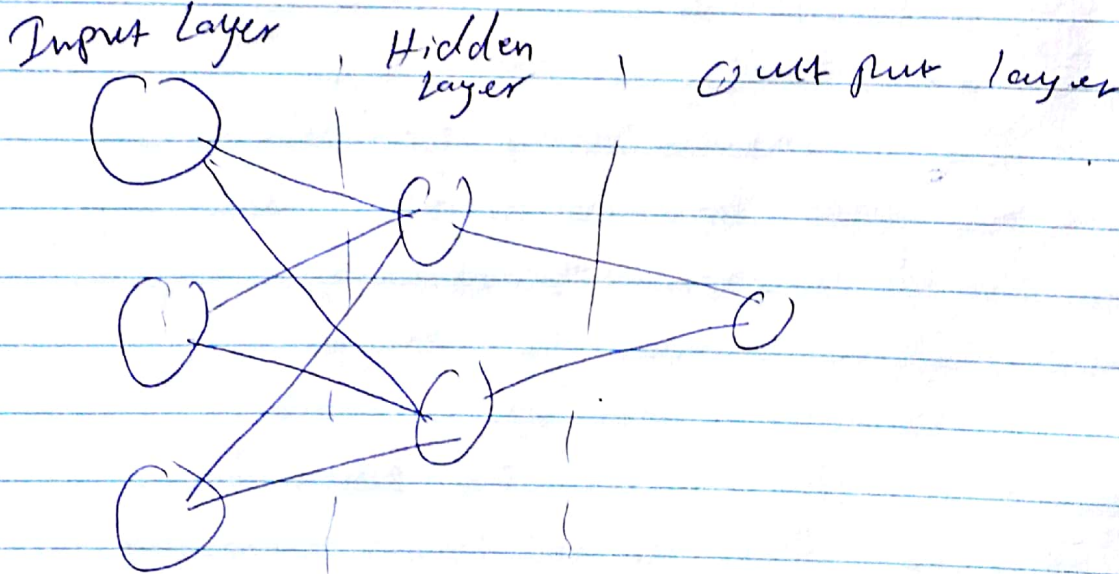 Input Layer
Hidden
Layer
Output layer